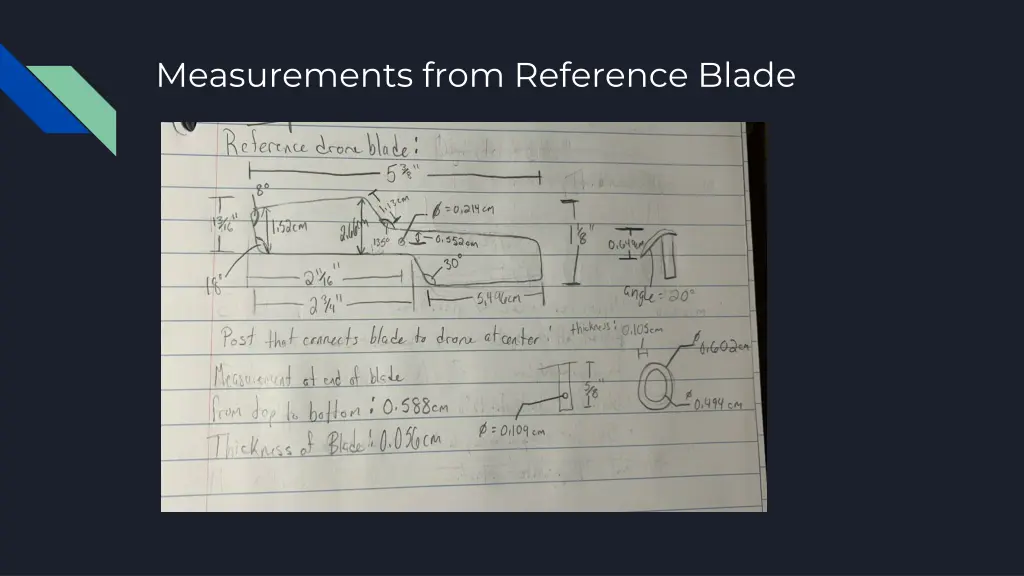 Measurements from Reference Blade
Reference drone blade:
5 3/8"
8°
1.13cm
Ø = 0.214cm
1 3/16"
1.52cm
135°
0.552cm
1 1/8"
30°
18°
2 11/16"
2 3/4"
5,496cm
angle = 20°
Post that connects blade to drone at center:
thickness: 0.105cm
Ø 0.602cm
Measurement at end of blade
from top to bottom: 0.588cm
5/8"
Ø 0.494 cm
Ø = 0.109cm
Thickness of Blade: 0.056cm